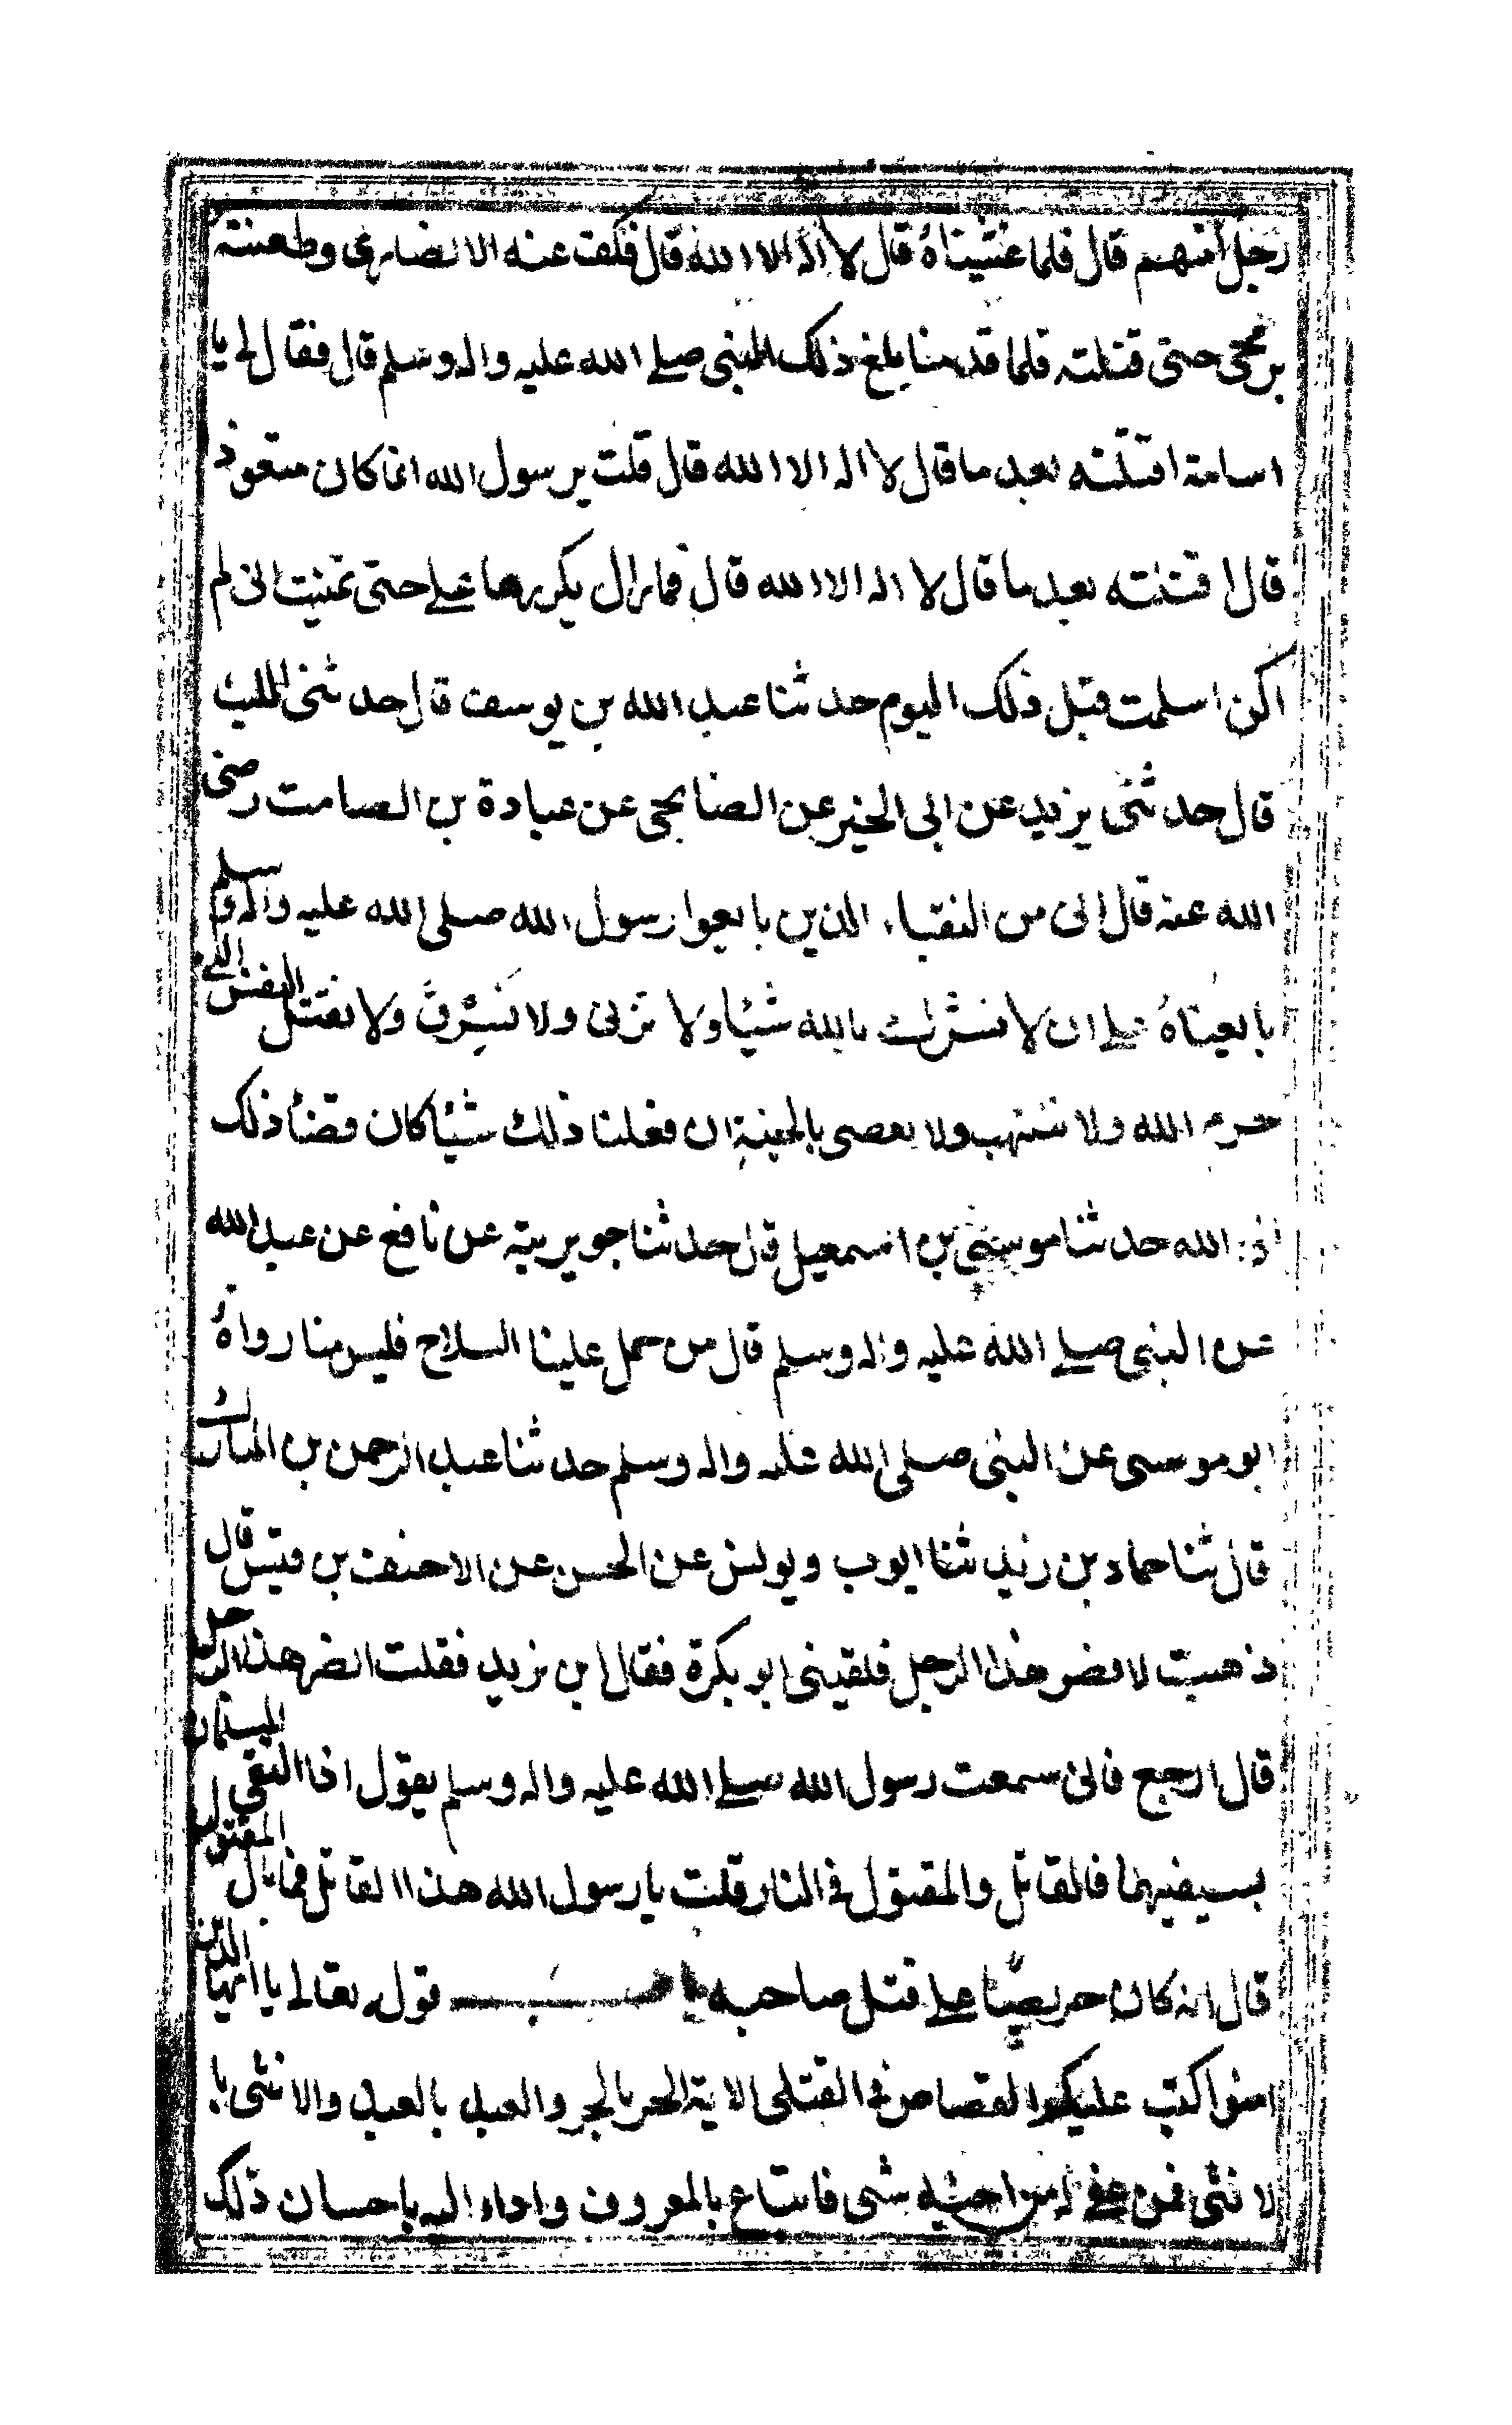 رجلا منهم قال فلما غشيناه قال لا اله الا الله قال فكف عنه الانصاري وطعنته
برمحى حتى قتلته فلما قدمنا بلغ ذلك النبى صلے الله عليه واله وسلم قال فقال لى يا
اسامة اقتلته بعد ما قال لا اله الا الله قال قلت يرسول الله انما كان متعوذ
قال اقتلته بعد ما قال لا اله الا الله قال فما زال يكررها علے حتى تمنيت انى لم
اكن اسلمت قبل ذلك اليوم حدثنا عبد الله بن يوسف قال حدثنى الليث
قال حدثنى يزيد عن ابى الخير عن الصنابحى عن عبادة بن الصامت رضى
الله عنه قال انى من النقباء الذين بايعوا رسول الله صلى الله عليه واله وسلم
بايعناه علے ان لا نشرك بالله شيئا ولا نزنى ولا نسرق ولا نقتل النفس التى
حرم الله ولا ننتهب ولا نعصى بالجنة ان فعلنا ذلك شيئا كان قضا ذلك
الله حدثنا موسى بن اسمعيل قال حدثنا جويرية عن نافع عن عبد الله
عن النبى صلے الله عليه واله وسلم قال من حمل علينا السلاح فليس منا رواه
ابو موسى عن النبى صلى الله عليه واله وسلم حدثنا عبد الرحمن بن المبارك
قال ثنا حماد بن زيد ثنا ايوب ويونس عن الحسن عن الاحنف بن قيس قال
ذهبت لانصر هذا الرجل فلقينى ابو بكرة فقال اين تريد فقلت انصر هذا الرجل
قال ارجع فانى سمعت رسول الله صلے الله عليه واله وسلم يقول اذا التقى المسلمان
بسيفيهما فالقاتل والمقتول فى النار قلت يا رسول الله هذا القاتل فما بال المقتول
قال انه كان حريصا علے قتل صاحبه باب قول تعالى يا ايها الذين
امنوا كتب عليكم القصاص فى القتلى الاية الحر بالحر والعبد بالعبد والانثى با
لانثى فمن عفى له من اخيه شى فاتباع بالمعروف واداء اليه باحسان ذلك